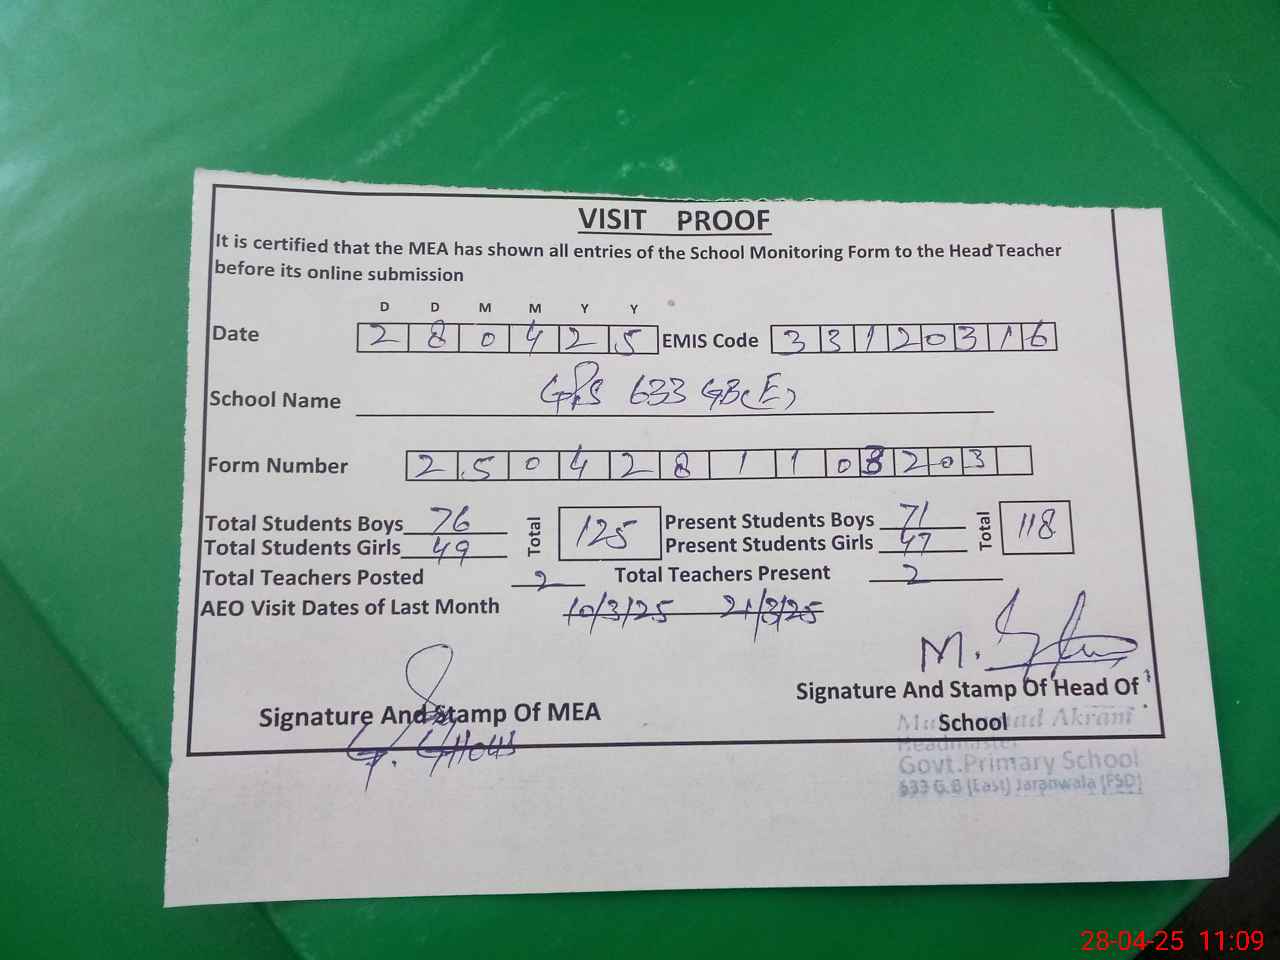 VISIT PROOF
It is certified that the MEA has shown all entries of the School Monitoring Form to the Head Teacher
before its online submission
D D M M Y Y
Date 2 8 0 4 2 5 EMIS Code 3 3 1 2 0 3 1 6
School Name GPS 633 GB(E)
Form Number 2 5 0 4 2 8 1 1 0 3 2 0 3
Total Students Boys 76 Total 125 Present Students Boys 71 Total 118
Total Students Girls 49 Present Students Girls 47
Total Teachers Posted 2 Total Teachers Present 2
AEO Visit Dates of Last Month 10/3/25 21/3/25
M.
Signature And Stamp Of MEA Signature And Stamp Of Head Of
School
Akram
Headmaster
Govt.Primary School
633 G.B (East) Jaranwala (FSD)
28-04-25 11:09